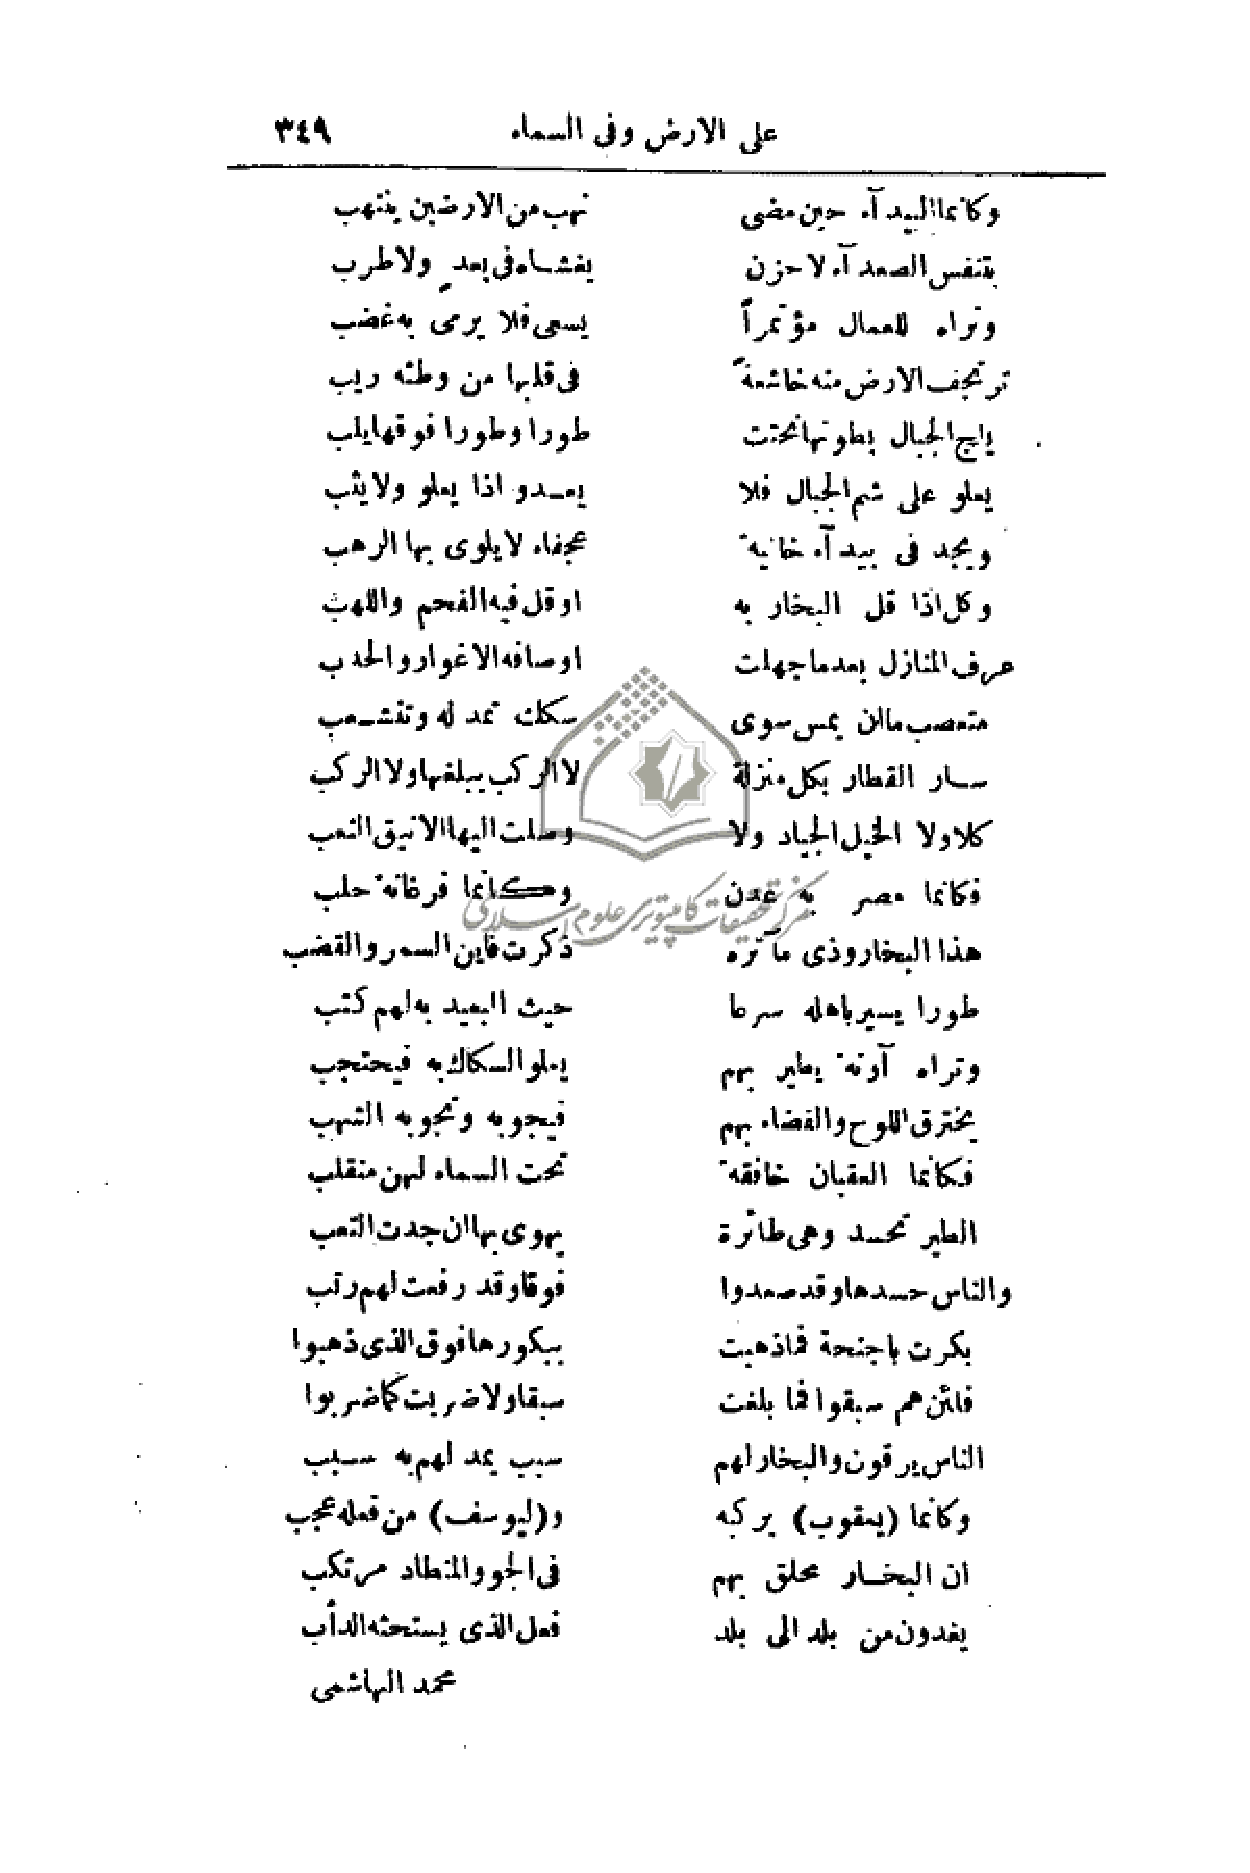 على الارض وفى السماء ٣٤٩
وكانما البيدآء حين مضى نهب من الارضين ينتهب
يتنفس الصعدآء لا حزن يغشاه فى بعد ولا طرب
وتراه للعمال مؤتمراً يسعى فلا يرمى به غضب
ترتجف الارض منه خاشعةً فى قلبها من وطئه ريب
ياج الجبال بطونها نحتت طورا وطورا فوقها يلب
يعلو على شم الجبال فلا يعدو اذا يعلو ولا يثب
ويجد فى بيدآء خانية عجفاء لا يلوى بها الرهب
وكل اذا قل البخار به او قل فيه الفحم واللهب
عرف المنازل بعد ما جهلت اوصافه الاغوار والحدب
متعصب ما ان يمس سوى سكك تمد له وتنشعب
سار القطار بكل منزلة لا الركب يبلغها ولا الركب
كلا ولا الخيل الجياد ولا وصلت اليها الانيق النعب
فكانما مصر به عدن وكانما فرغانة حلب
هذا البخار وذى مآثره ذكرت فاين السمر والقضب
طورا يسير باهله سرعا حيث البعيد به لهم كثب
وتراه آونة يطير بهم يعلو السكاك به فيحتجب
يخترق اللوح والفضاء بهم فيجوبه وتجوبه الشهب
فكانما العقبان خافقة تحت السماء لهن منقلب
الطير تحسد وهى طائرة يهوى بها ان جدت التعب
والناس حسدها وقد صعدوا فوقا وقد رفعت لهم رتب
بكرت باجنحة فما ذهبت ببكورها فوق الذى ذهبوا
فائن هم سبقوا فما بلغت سبقا ولا ضربت كما ضربوا
الناس يرقون والبخار لهم سبب يمد لهم به سبب
وكانما (يعقوب) يركبه و(ليوسف) من فعله عجب
ان البخار محلق بهم فى الجو والمنطاد مرتكب
يغدون من بلد الى بلد فعل الذى يستحثه الدأب
محمد الهاشمى
مركز تحقيقات كامپيوترى علوم اسلامى